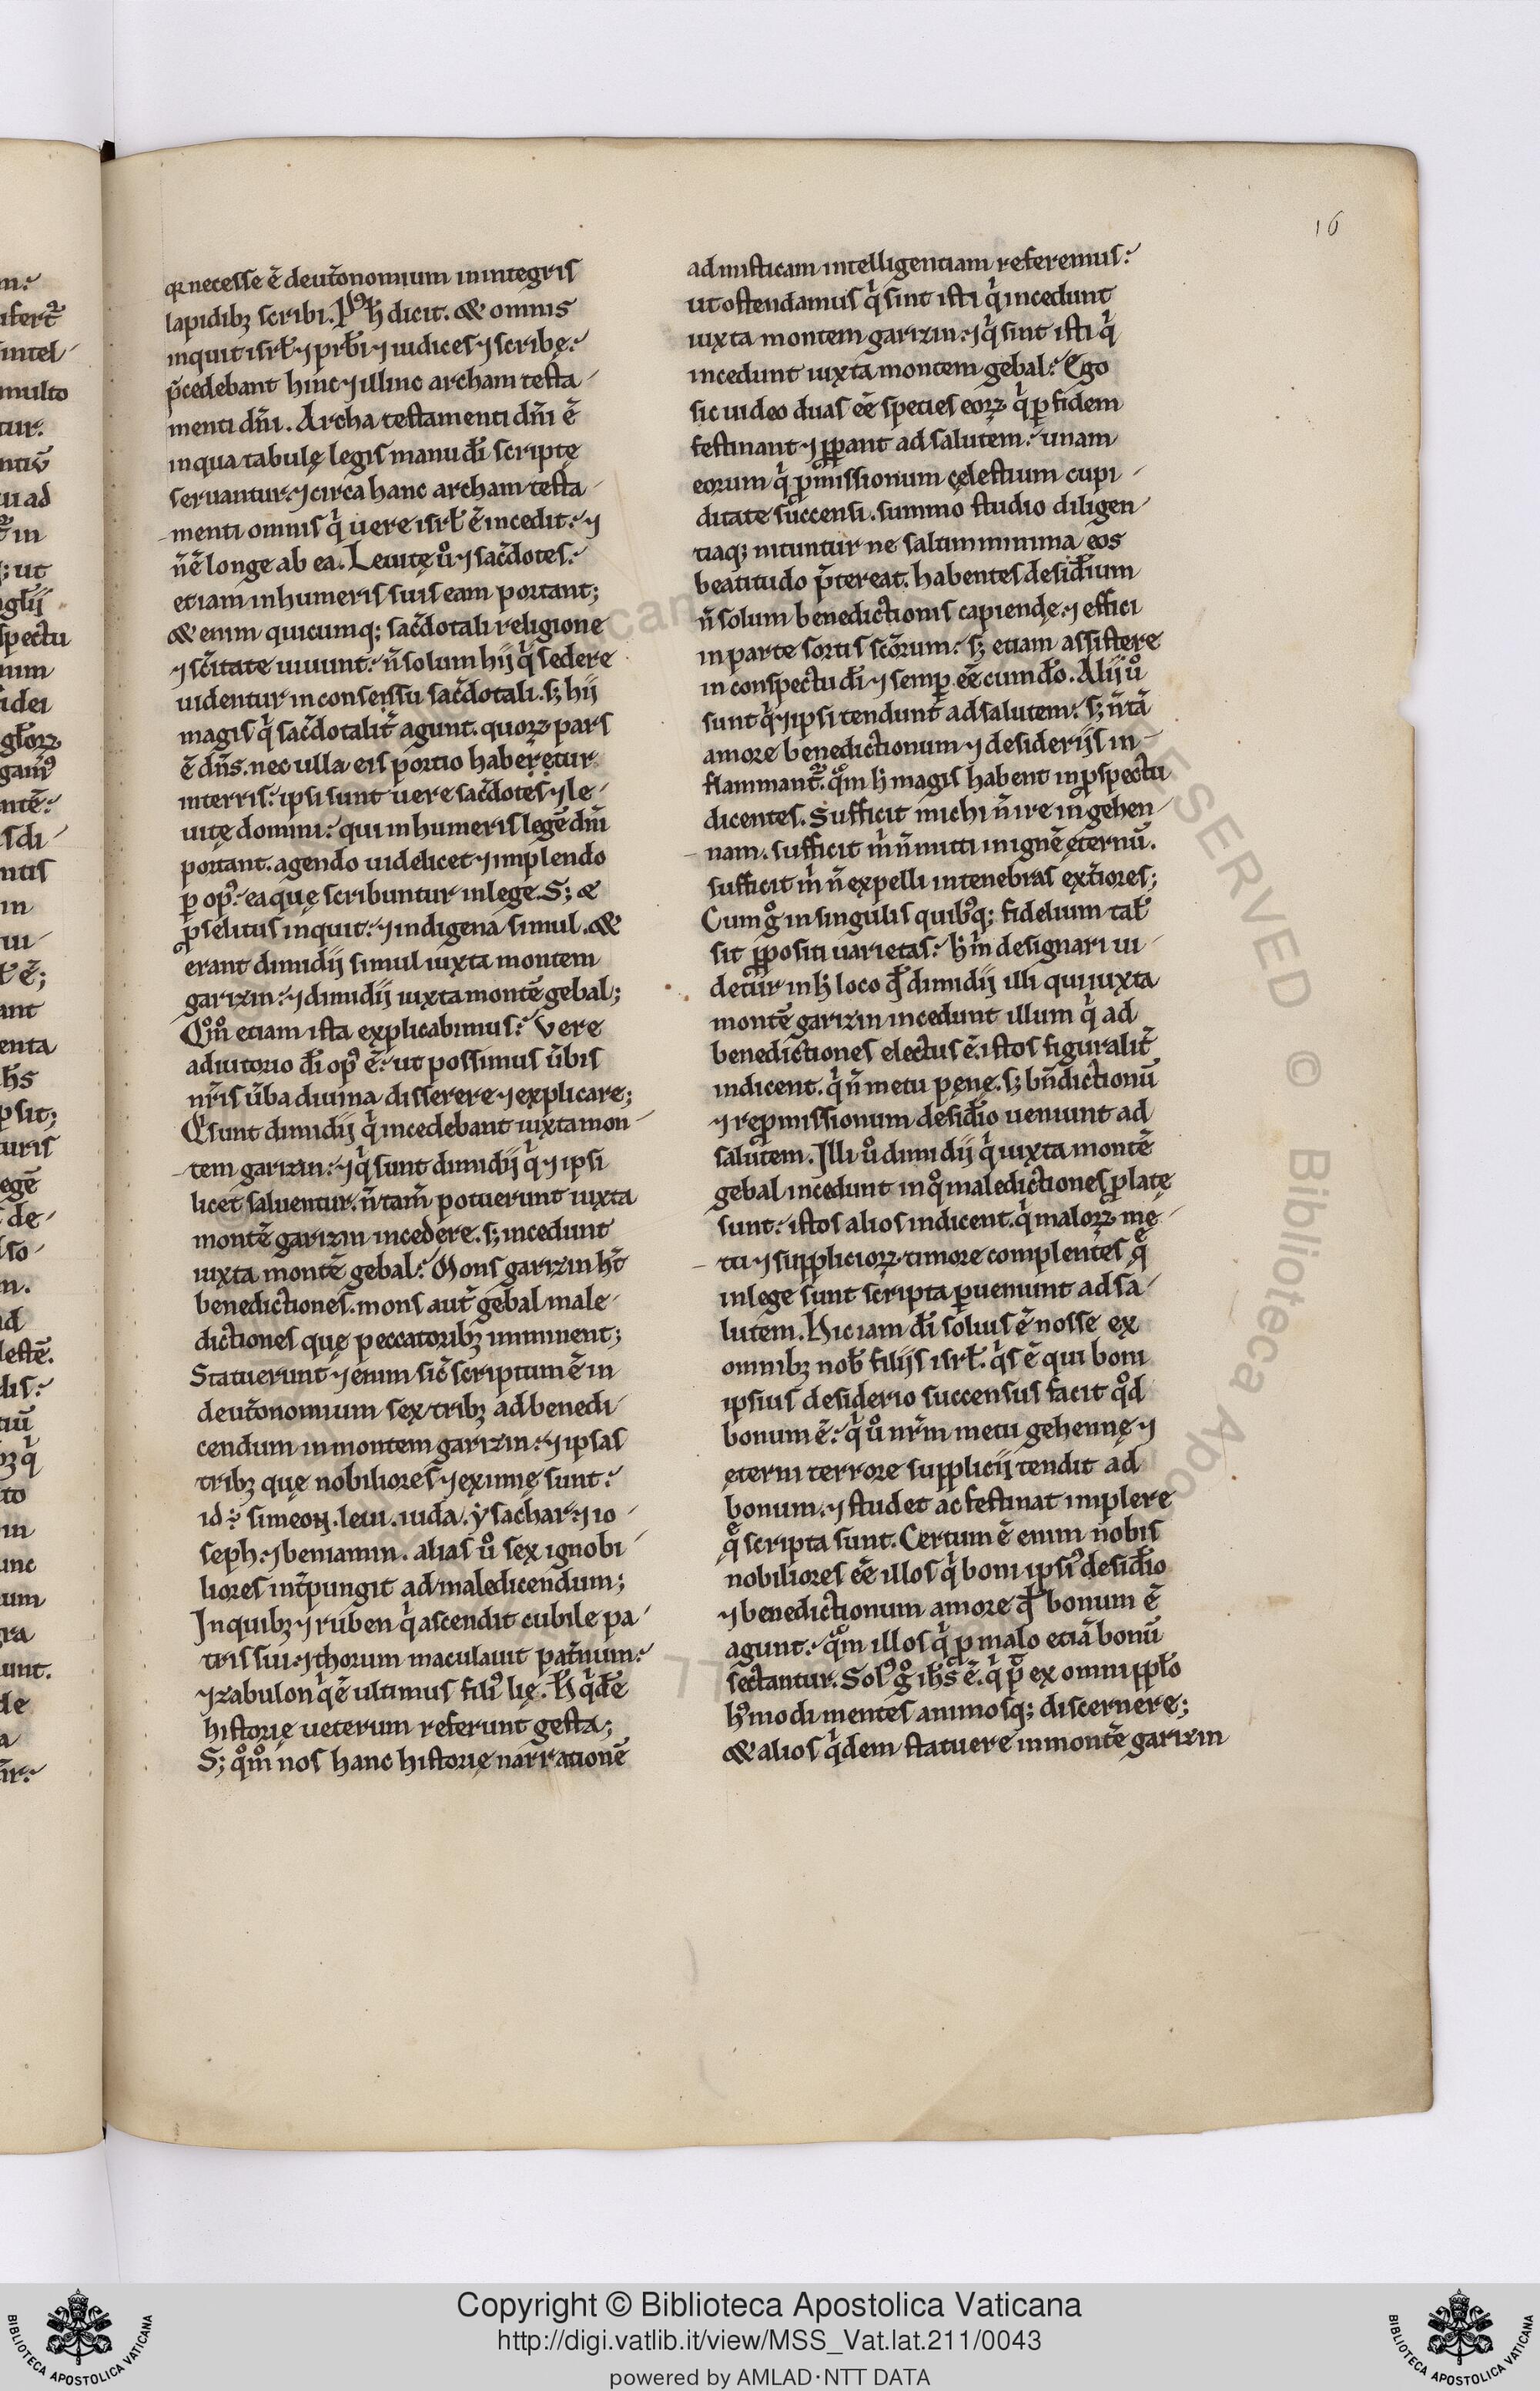 16
qr necesse ē deut̄onomium in integris
lapidibꝫ scribi. Pꝰ ħ dicit. & omnis
inquit isrl̄ ⁊ prb̄i ⁊ iudices ⁊ scribę.
p̄cedebant hinc ⁊ illinc archam testa-
menti dn̄i. Archa testamenti dn̄i ē
in qua tabulę legis manu dī scriptę
seruantur. ⁊ circa hanc archam testa-
menti omnis qͥ uere isrl̄ ē incedit. ⁊
n̄ ē longe ab ea. Leuitę uͦ ⁊ sac̄dotes.
etiam in humeris suis eam portant;
& enim quicumq; sac̄dotali religione
⁊ sc̄itate uiuunt. n̄ solum hij qͥ sedere
uidentur in consessu sac̄dotali. sꝫ hij
magis qͥ sac̄dotalit̄ agunt. quoꝝ pars
ē dn̄s. nec ulla eis portio haberetur
in terris. ipsi sunt uere sac̄dotes ⁊ le-
uitę domini. qui in humeris legē dn̄i
portant. agendo uidelicet ⁊ implendo
ꝑ opꝰ. ea quę scribuntur in lege. S; &
ꝓselitus inquit. ⁊ indigena simul. &
erant dimidij simul iuxta montem
garizin. ⁊ dimidij iuxta montē gebal;
Qm̊o etiam ista explicabimus. Vere
adiutorio dī opꝰ ē. ut possimus ūbis
nr̄is ūba diuina disserere ⁊ explicare;
Qͥ sunt dimidij qͥ incedebant iuxta mon-
tem garizin. ⁊ qͥ sunt dimidij qͥ ⁊ ipsi
licet saluentur. n̄ tam̄ potuerunt iuxta
montē garizin incedere. sꝫ incedunt
iuxta montē gebal. Mons garizin ħt
benedictiones. mons aut̄ gebal male-
dictiones quę peccatoribꝫ imminent;
Statuerunt ⁊enim sic̄ scriptum ē in
deut̄onomium sex tribꝫ ad benedi-
cendum in montem garizin. ⁊ ipsas
tribꝫ quę nobiliores ⁊ eximię sunt.
id ÷ simeon. leui. iuda. ẏsachar. ⁊ io-
seph. ⁊ beniamin. alias uͦ sex ignobi-
liores int̄pungit ad maledicendum;
In quibꝫ ⁊ ruben qͥ ascendit cubile pa-
tris sui. ⁊ thorum maculauit pat̄num.
⁊ zabulon qͥ ē ultimus filiꝰ lię. ħ qͥdē
historię ueterum referunt gesta;
S; qm̊o nos hanc historię narrationē
ad misticam intelligentiam referemus.
ut ostendamus qͥ sint isti qͥ incedunt
iuxta montem garizin. ⁊ qͥ sint isti qͥ
incedunt iuxta montem gebal. Ego
sic uideo duas eē species eoꝝ qͥ ꝑ fidem
festinant ⁊ ꝓꝑant ad salutem. unam
eorum qͥ ꝓmissionum cęlestium cupi-
ditate succensi. summo studio diligen-
tiaq; nituntur ne saltim minima eos
beatitudo p̄tereat. habentes desid̄ium
n̄ solum benedictionis capiendę. ⁊ effici
in parte sortis sc̄orum. sꝫ etiam assistere
in conspectu dī ⁊ semꝑ eē cum do̅. Alij uͦ
sunt qͥ ⁊ ipsi tendunt ad salutem. sꝫ n̄ tā
amore benedictionum ⁊ desiderijs in-
flammant᷑. qm̊ ħ magis habent in ꝓspectu
dicentes. Sufficit michi n̄ ire in gehen-
nam. sufficit m̄ n̄ mitti in ignē ęternū.
sufficit m̄ n̄ expelli in tenebras ext̄iores;
Cum gͦ in singulis quibꝰq; fidelium tal̄
sit ꝓpositi uarietas. ħ m̄ designari ui-
detur in ħ loco qđ dimidij illi qui iuxta
montē garizin incedunt illum qͥ ad
benedictiones electus ē. istos figuralit̄
indicent. qͥ n̄ metu pęnę. sꝫ bn̄dictionū
⁊ repmissionum desid̄io ueniunt ad
salutem. Illi uͦ dimidij qͥ iuxta montē
gebal incedunt in qͦ maledictiones ꝓlatę
sunt. istos alios indicent. qͥ maloꝝ mę-
tu ⁊ supplicioꝝ timore complentes q̄
in lege sunt scripta ꝑueniunt ad sa-
lutem. Hic iam dī solius ē nosse ex
omnibꝫ nob̄ filijs isrl̄. qͥs ē qui boni
ipsius desiderio succensus facit qͦd
bonum ē. qͥ uͦ nr̄m metu gehennę ⁊
ęterni terrore supplicij tendit ad
bonum. ⁊ studet ac festinat implere
q̄ scripta sunt. Certum ē enim nobis
nobiliores eē illos qͥ boni ipsiꝰ desid̄io
⁊ benedictionum amore qđ bonum ē
agunt. qͣm illos qͥ ꝓ malo etiā bonū
sectantur. Solꝰ gͦ ih̄s ē. qͥ p̄t ex omni ppl̄o
hꝰmodi mentes animosq; discernere;
& alios qͥdem statuere in montē garizin
Copyright © Biblioteca Apostolica Vaticana
http://digi.vatlib.it/view/MSS_Vat.lat.211/0043
powered by AMLAD·NTT DATA
BIBLIOTECA APOSTOLICA VATICANA
BIBLIOTECA APOSTOLICA VATICANA